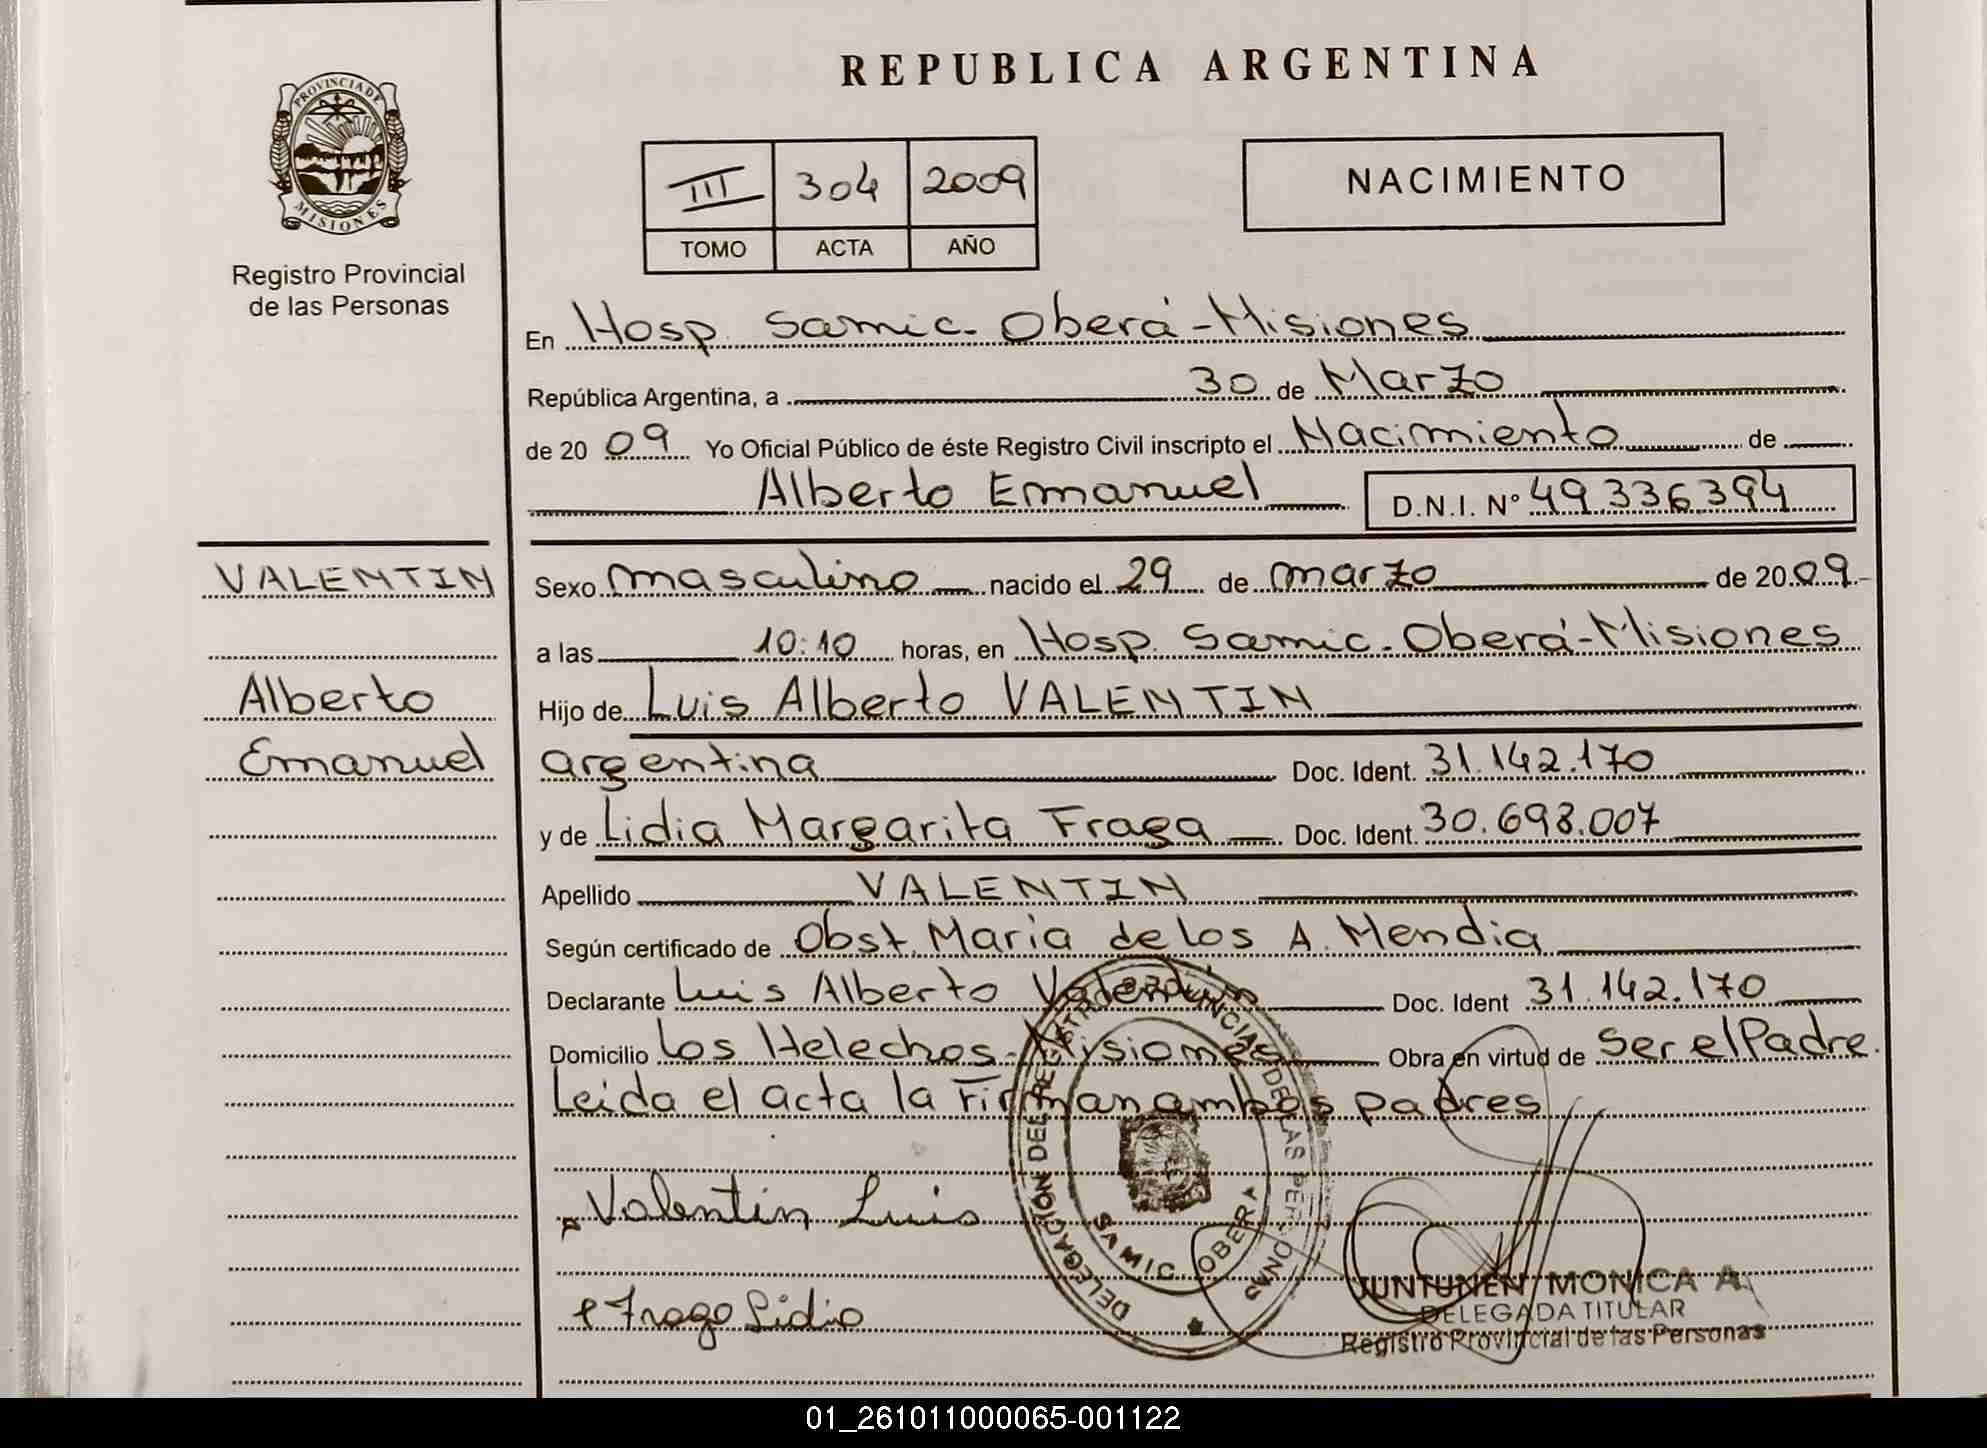 REPUBLICA ARGENTINA
PROVINCIA DE
MISIONES
Registro Provincial
de las Personas
III 304 2009
TOMO ACTA AÑO
NACIMIENTO
En Hosp. Samic. Oberá - Misiones
República Argentina, a 30 de Marzo
de 20 09 Yo Oficial Público de éste Registro Civil inscripto el Nacimiento de
Alberto Emanuel D.N.I. Nº 49.336.394
VALENTIN
Alberto
Emanuel
Sexo masculino nacido el 29 de marzo de 20 09.-
a las 10:10 horas, en Hosp. Samic. Oberá - Misiones
Hijo de Luis Alberto VALENTIN
argentina Doc. Ident. 31.142.170
y de Lidia Margarita Fraga Doc. Ident. 30.698.007
Apellido VALENTIN
Según certificado de Obst. Maria de los A. Mendia
Declarante Luis Alberto Valentin Doc. Ident 31.142.170
Domicilio Los Helechos - Misiones Obra en virtud de Ser el Padre.
Leida el acta la Firman ambos padres
Valentin Luis
Fraga Lidia
DELEGACIÓN DEL REGISTRO PROVINCIAL DE LAS PERSONAS
SAMIC OBERA
JUNTUNEN MONICA A.
DELEGADA TITULAR
Registro Provincial de las Personas
01_261011000065-001122